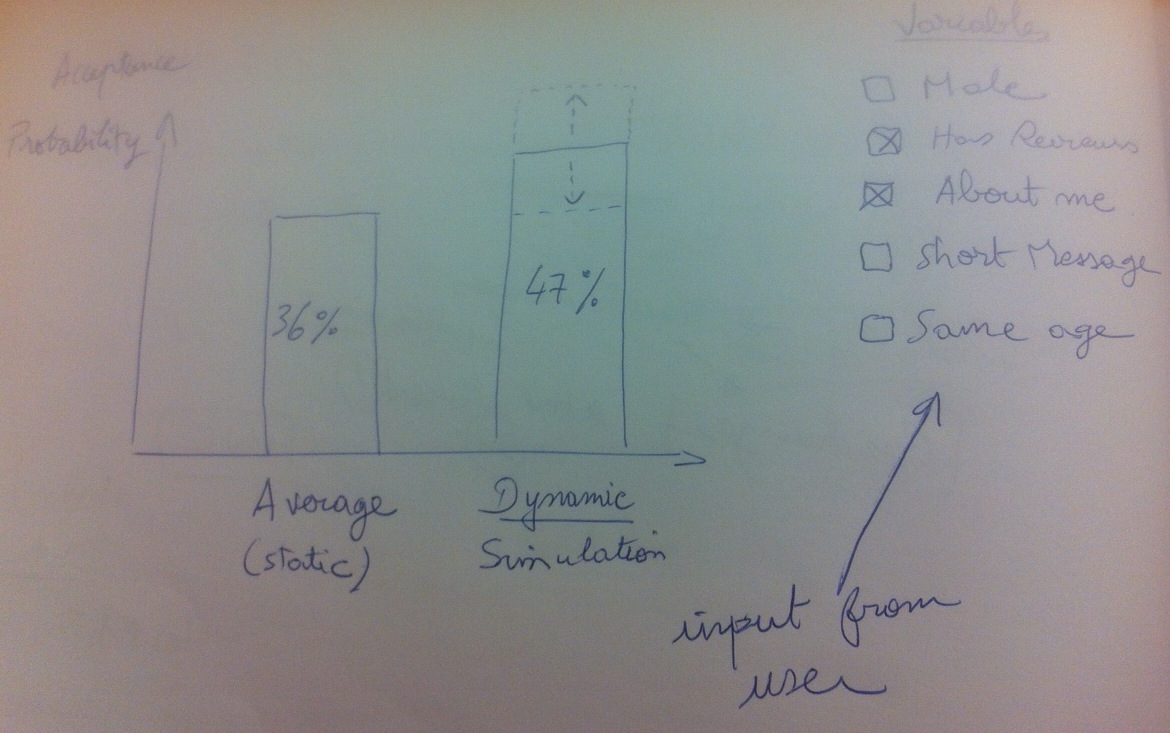 Acceptance
Probability
36%
47%
Average
(static)
Dynamic
Simulation
Variables
Male
Has Reviews
About me
Short Message
Same age
input from
user